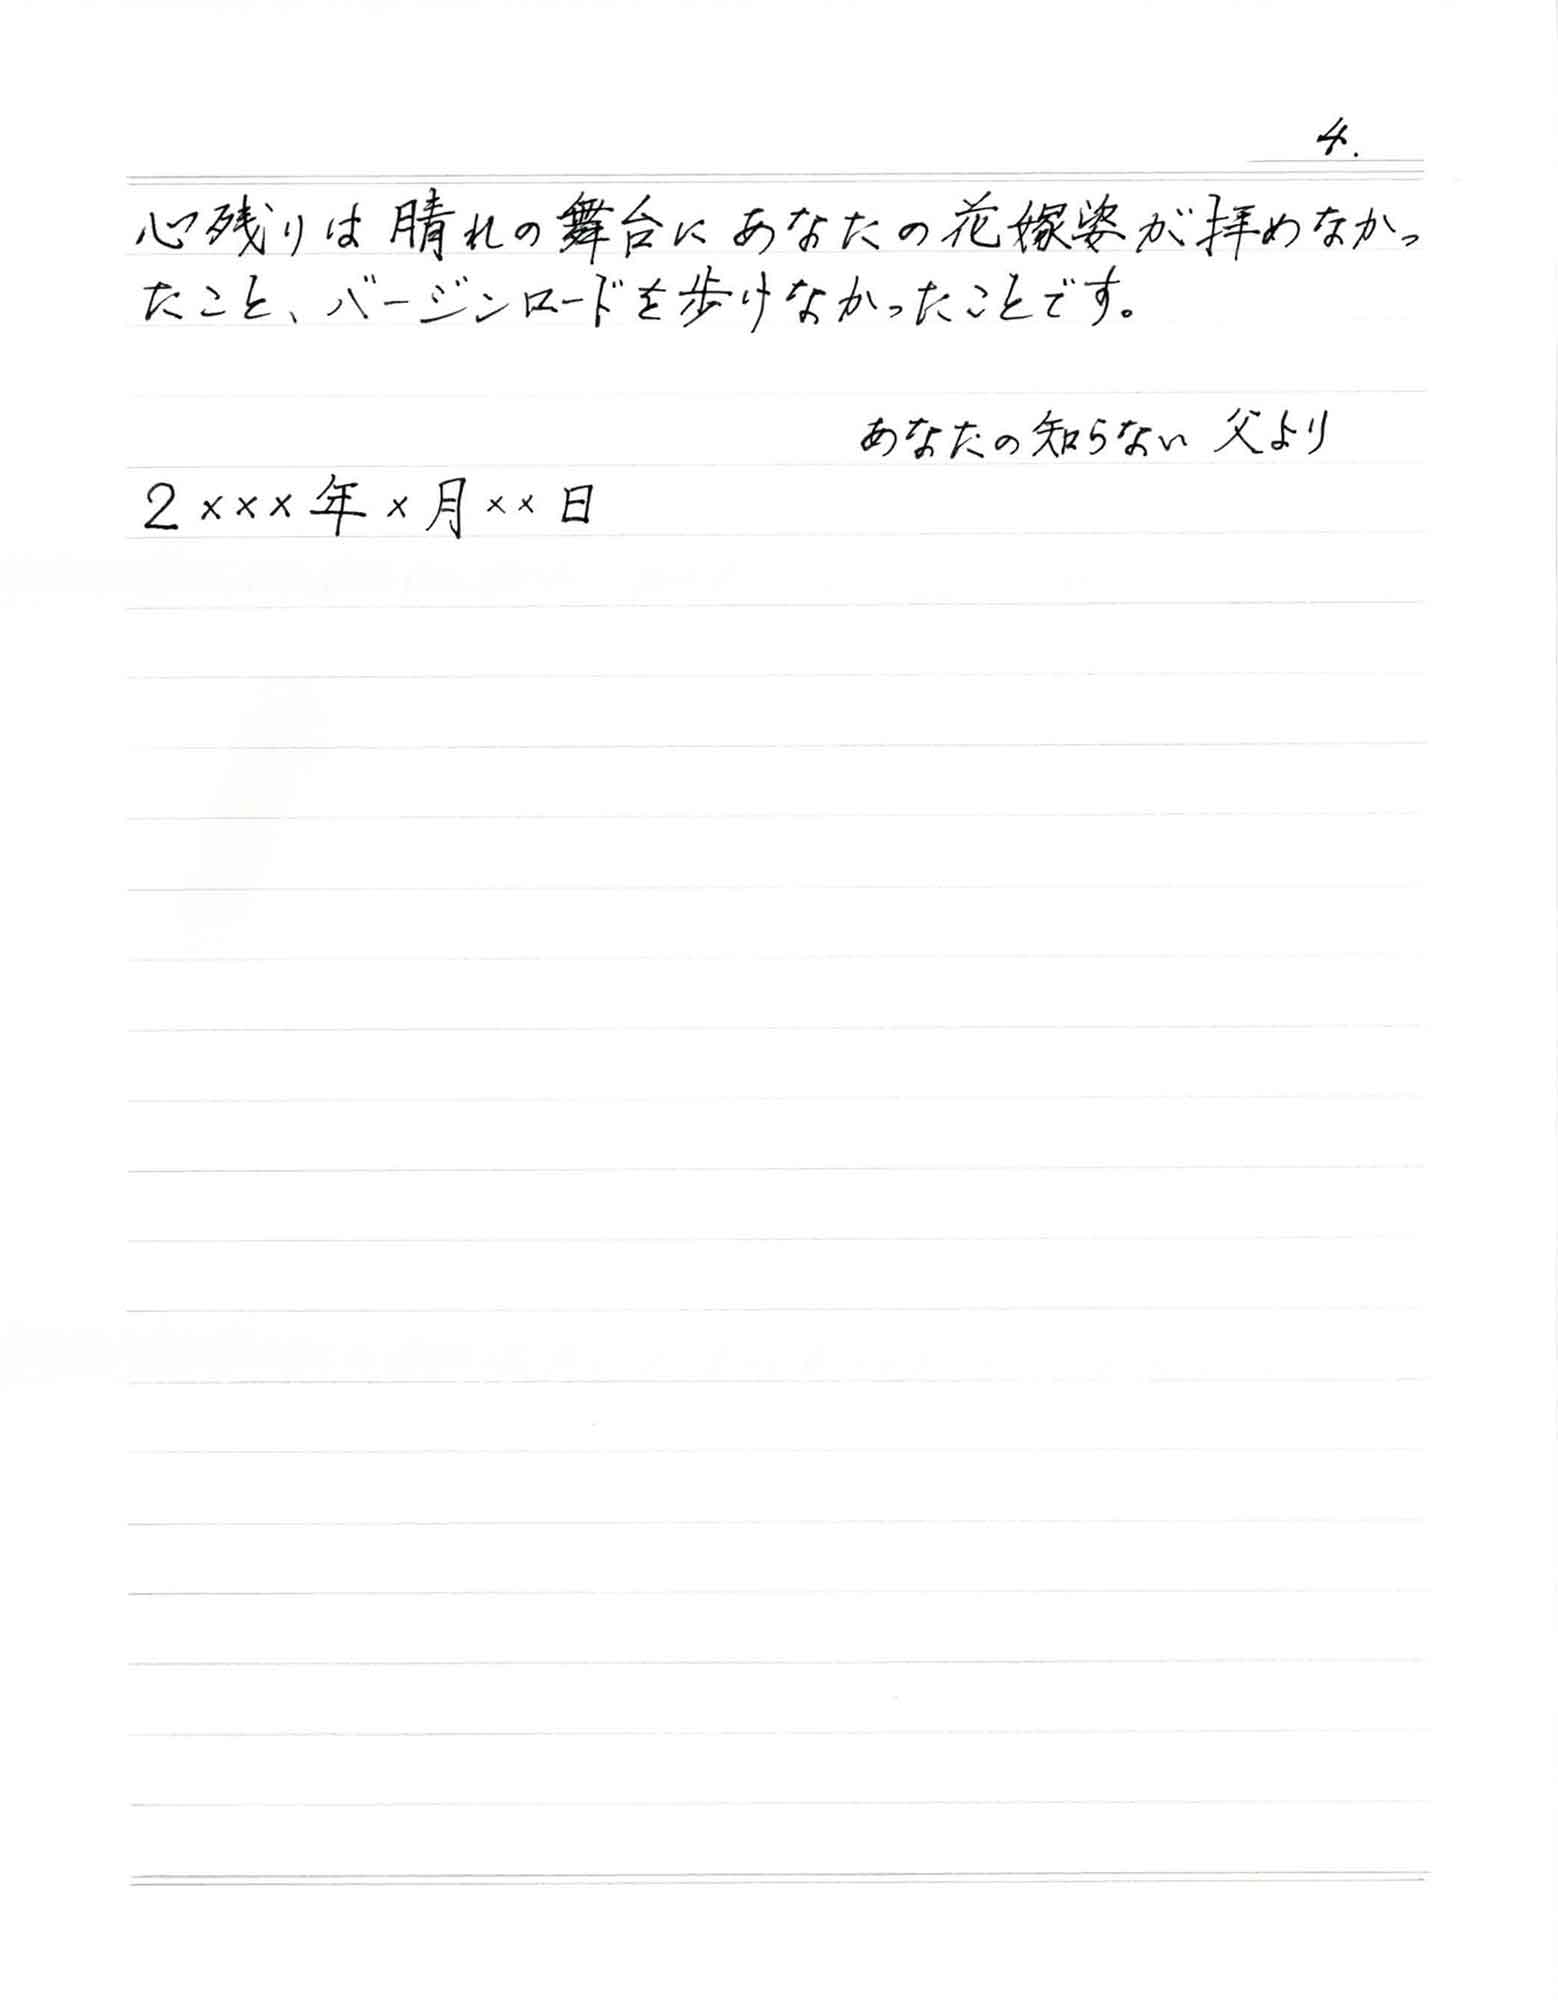 4.
心残りは晴れの舞台にあなたの花嫁姿が拝めなかっ
たこと、バージンロードを歩けなかったことです。
あなたの知らない 父より
2×××年×月××日